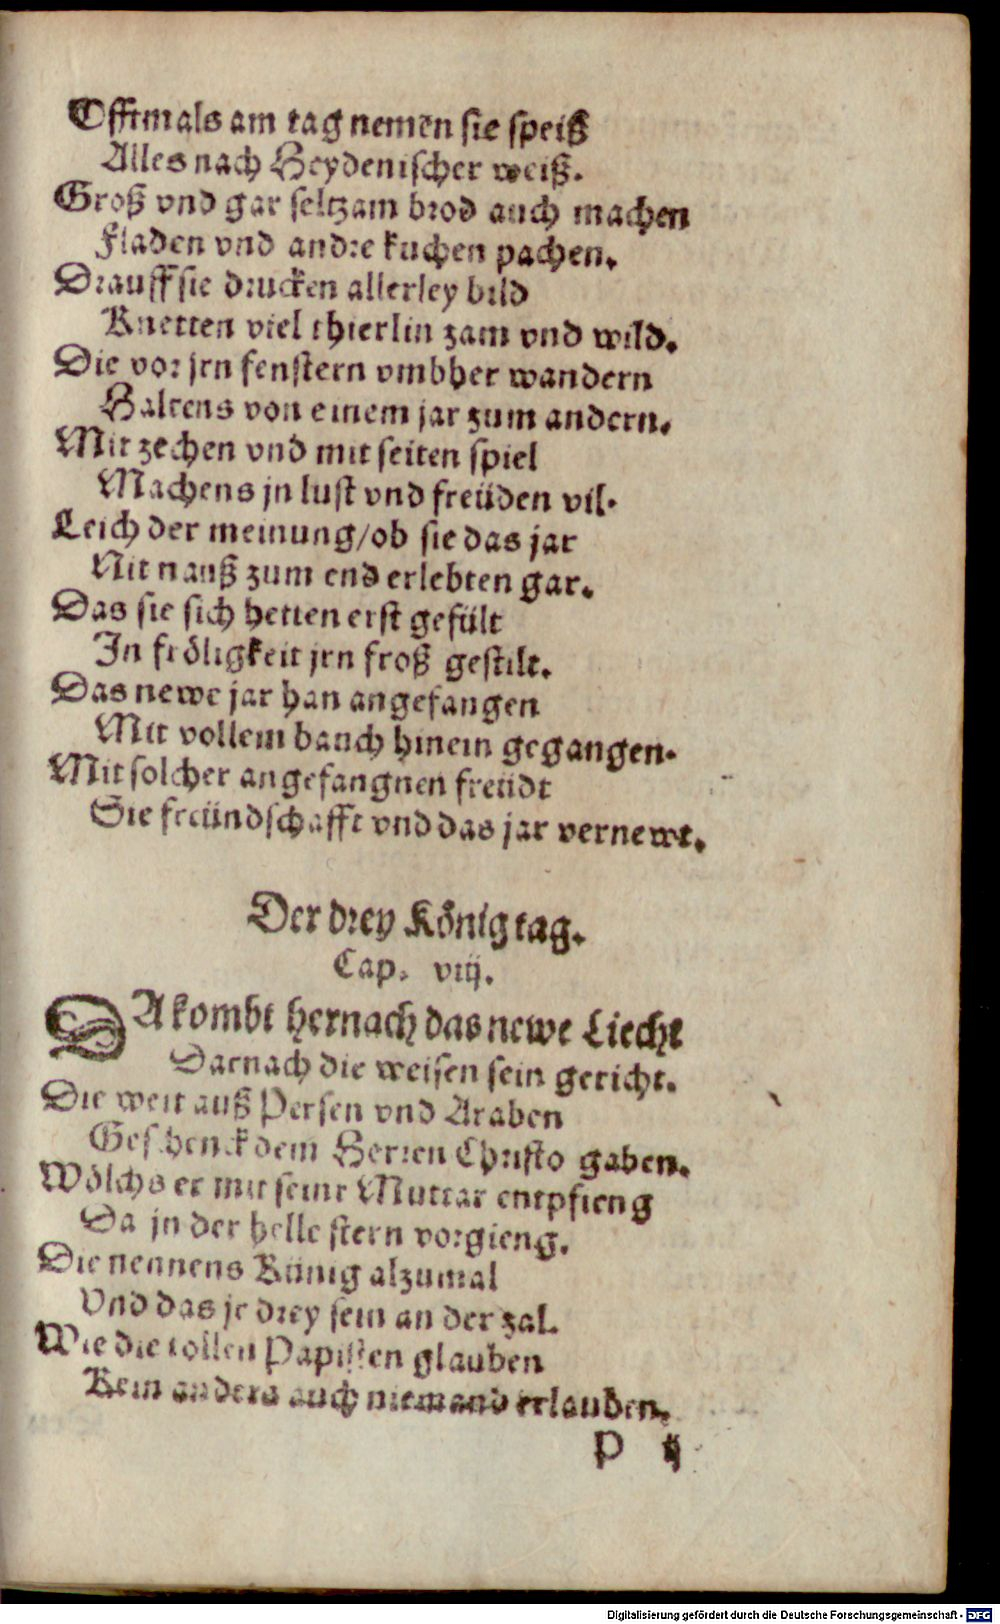 Offtmals am tag nemen sie speiß
Alles nach Heydenischer weiß.
Groß vnd gar seltzam brod auch machen
Fladen vnd andre kuchen pachen.
Drauff sie drucken allerley bild
Knetten viel thierlin zam vnd wild.
Die vor jrn fenstern vmbher wandern
Haltens von einem jar zum andern.
Mit zechen vnd mit seiten spiel
Machens jn lust vnd freüden vil.
Leich der meinung/ob sie das jar
Nit nauß zum end erlebten gar.
Das sie sich hetten erst gefült
In fröligkeit jrn froß gestilt.
Das newe jar han angefangen
Mit vollem bauch hinein gegangen.
Mit solcher angefangnen freüdt
Sie freündschafft vnd das jar vernewt.
Der drey König tag.
Cap. viij.
DA kombt hernach das newe Liecht
Darnach die weisen sein gericht.
Die weit auß Persen vnd Araben
Geschenck dem Herren Christo gaben.
Wölchs er mit seinr Muttar entpfieng
Da jn der helle stern vorgieng.
Die nennens Künig alzumal
Vnd das je drey sein an der zal.
Wie die tollen Papisten glauben
Kein anders auch niemand erlauben.
P ij
Digitalisierung gefördert durch die Deutsche Forschungsgemeinschaft - DFG